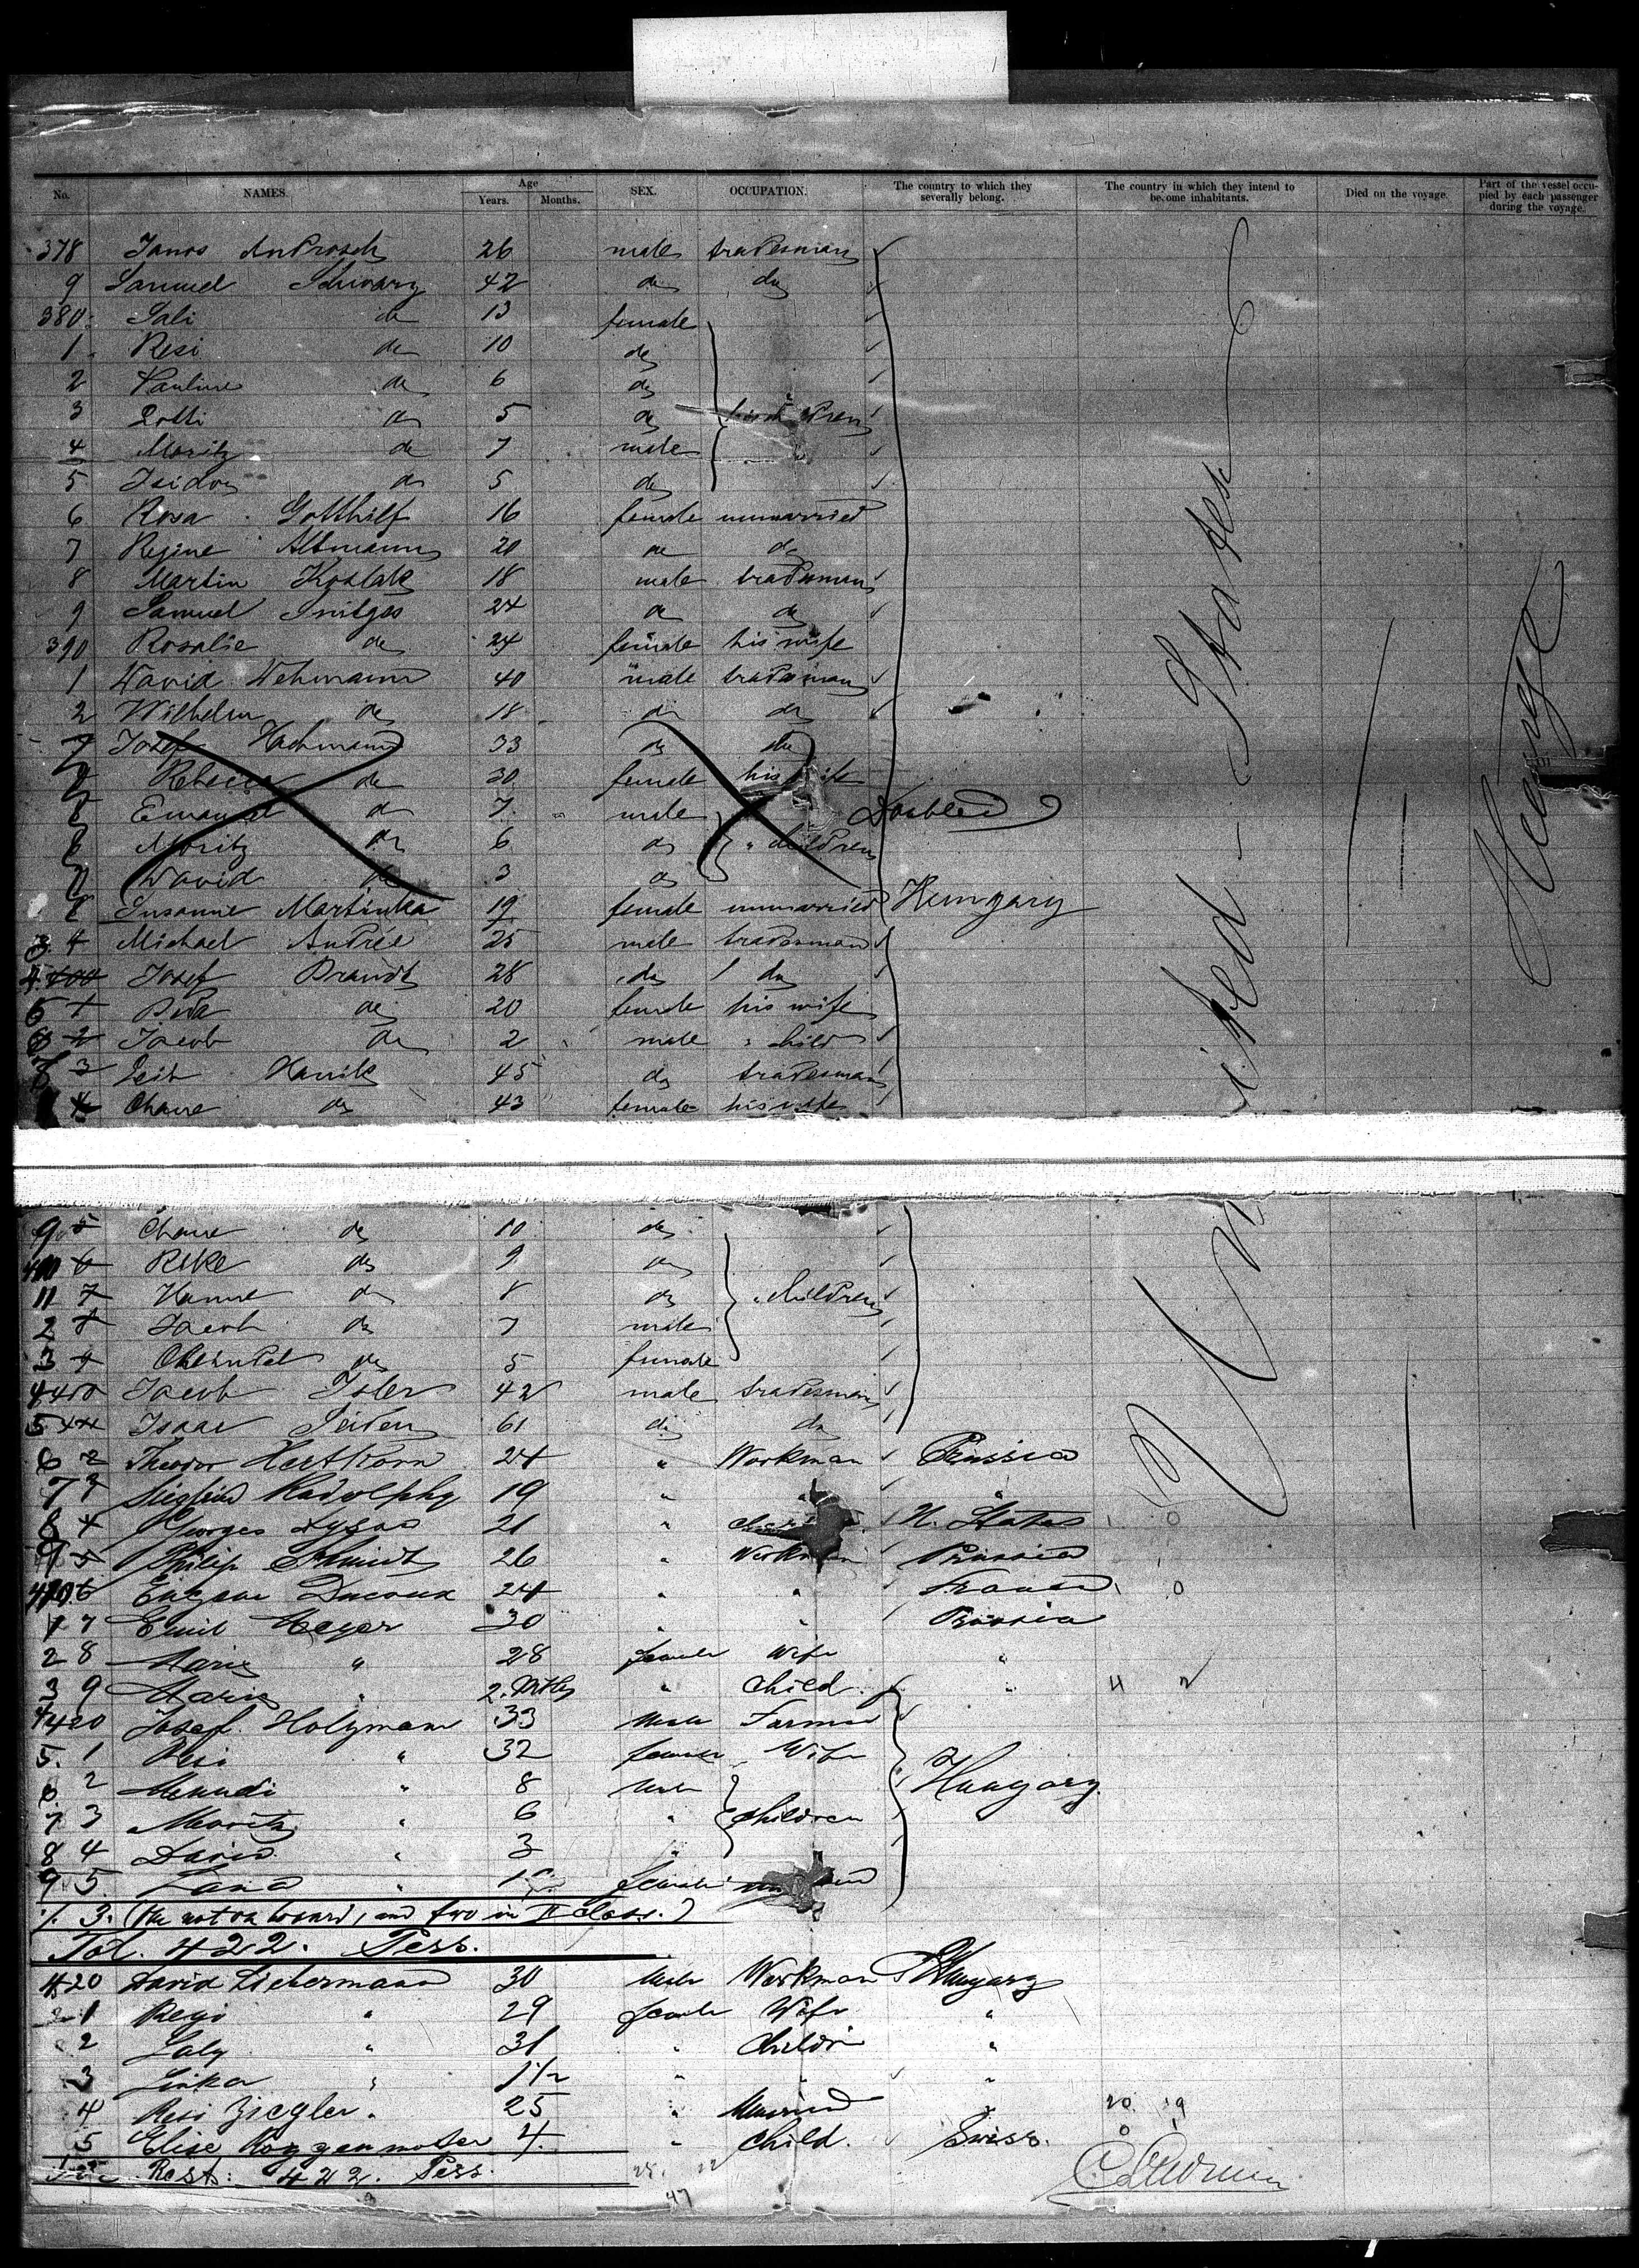 No. NAMES. Age Years. Months. SEX. OCCUPATION. The country to which they severally belong. The country in which they intend to become inhabitants. Died on the voyage. Part of the vessel occupied by each passenger during the voyage.
378 Janos Androsch 26 male tradesman
9 Samuel Schwarz 42 do do
380 Sali do 13 female
1 Resi do 10 do
2 Pauline do 6 do
3 Lotti do 5 do
4 Moritz do 7 male
5 Isidor do 5 do
6 Rosa Gotthilf 16 female unmarried
7 Regine Altmann 20 do do
8 Martin Kozlak 18 male tradesman
9 Samuel 24 do do
390 Rosalie do 24 female his wife
1 David Wehmann 40 male tradesman
2 Wilhelm do 18 do do
Josef Hachmann 33 do do
Rebecca do 30 female his wife
Emanuel do 7 male Doubled
Moritz do 6 do " children
David do 3 do
Susanne Martinka 19 female unmarried Hungary
3 Michael Andrée 25 male tradesman
4 400 Josef Brandt 28 do do
5 1 do 20 female his wife
6 2 Jacob do 2 male " child
3 Leib Hanik 45 do tradesman
4 Chane do 43 female his wife
United States
Steerage
9 5 Chane do 10 do
410 6 Rike do 9 do
11 7 Hanne do 8 do " children
2 8 Jacob do 7 male
3 9 do 5 female
4 410 Jacob Isler 42 male tradesman
5 Isaac Seiden 61 do do
6 2 Theodor 24 " Workman Prussia
7 3 Siegfried Radolphy 19 " " "
8 4 Georges 21 " U. States
9 5 Philip Schmidt 26 " Workman Prussia
6 Eugene Ducoux 24 " " France
1 7 Emil Meyer 30 " " Prussia
2 8 Marie " 28 female Wife "
3 9 Marie " 2. Mths " Child "
4 420 Josef Holzmann 33 Male Farmer
5. 1 Resi " 32 female Wife Hungary.
6 2 " 8 Male
7 3 Moritz " 6 " Children
8 4 David " 3 "
9 5 " female
./. 3. (the not on board, and two in II class.)
Tot. 422. Pess.
420 David Liebermann 30 Male Workman Hungary
1 " 29 female Wife "
2 " " "
3 " 1 1/2 " " "
4 Resi Ziegler. 25 " Married "
5 Elise Roggenmoser 4. " Child. Swiss.
Rest: 422. Pess.
47